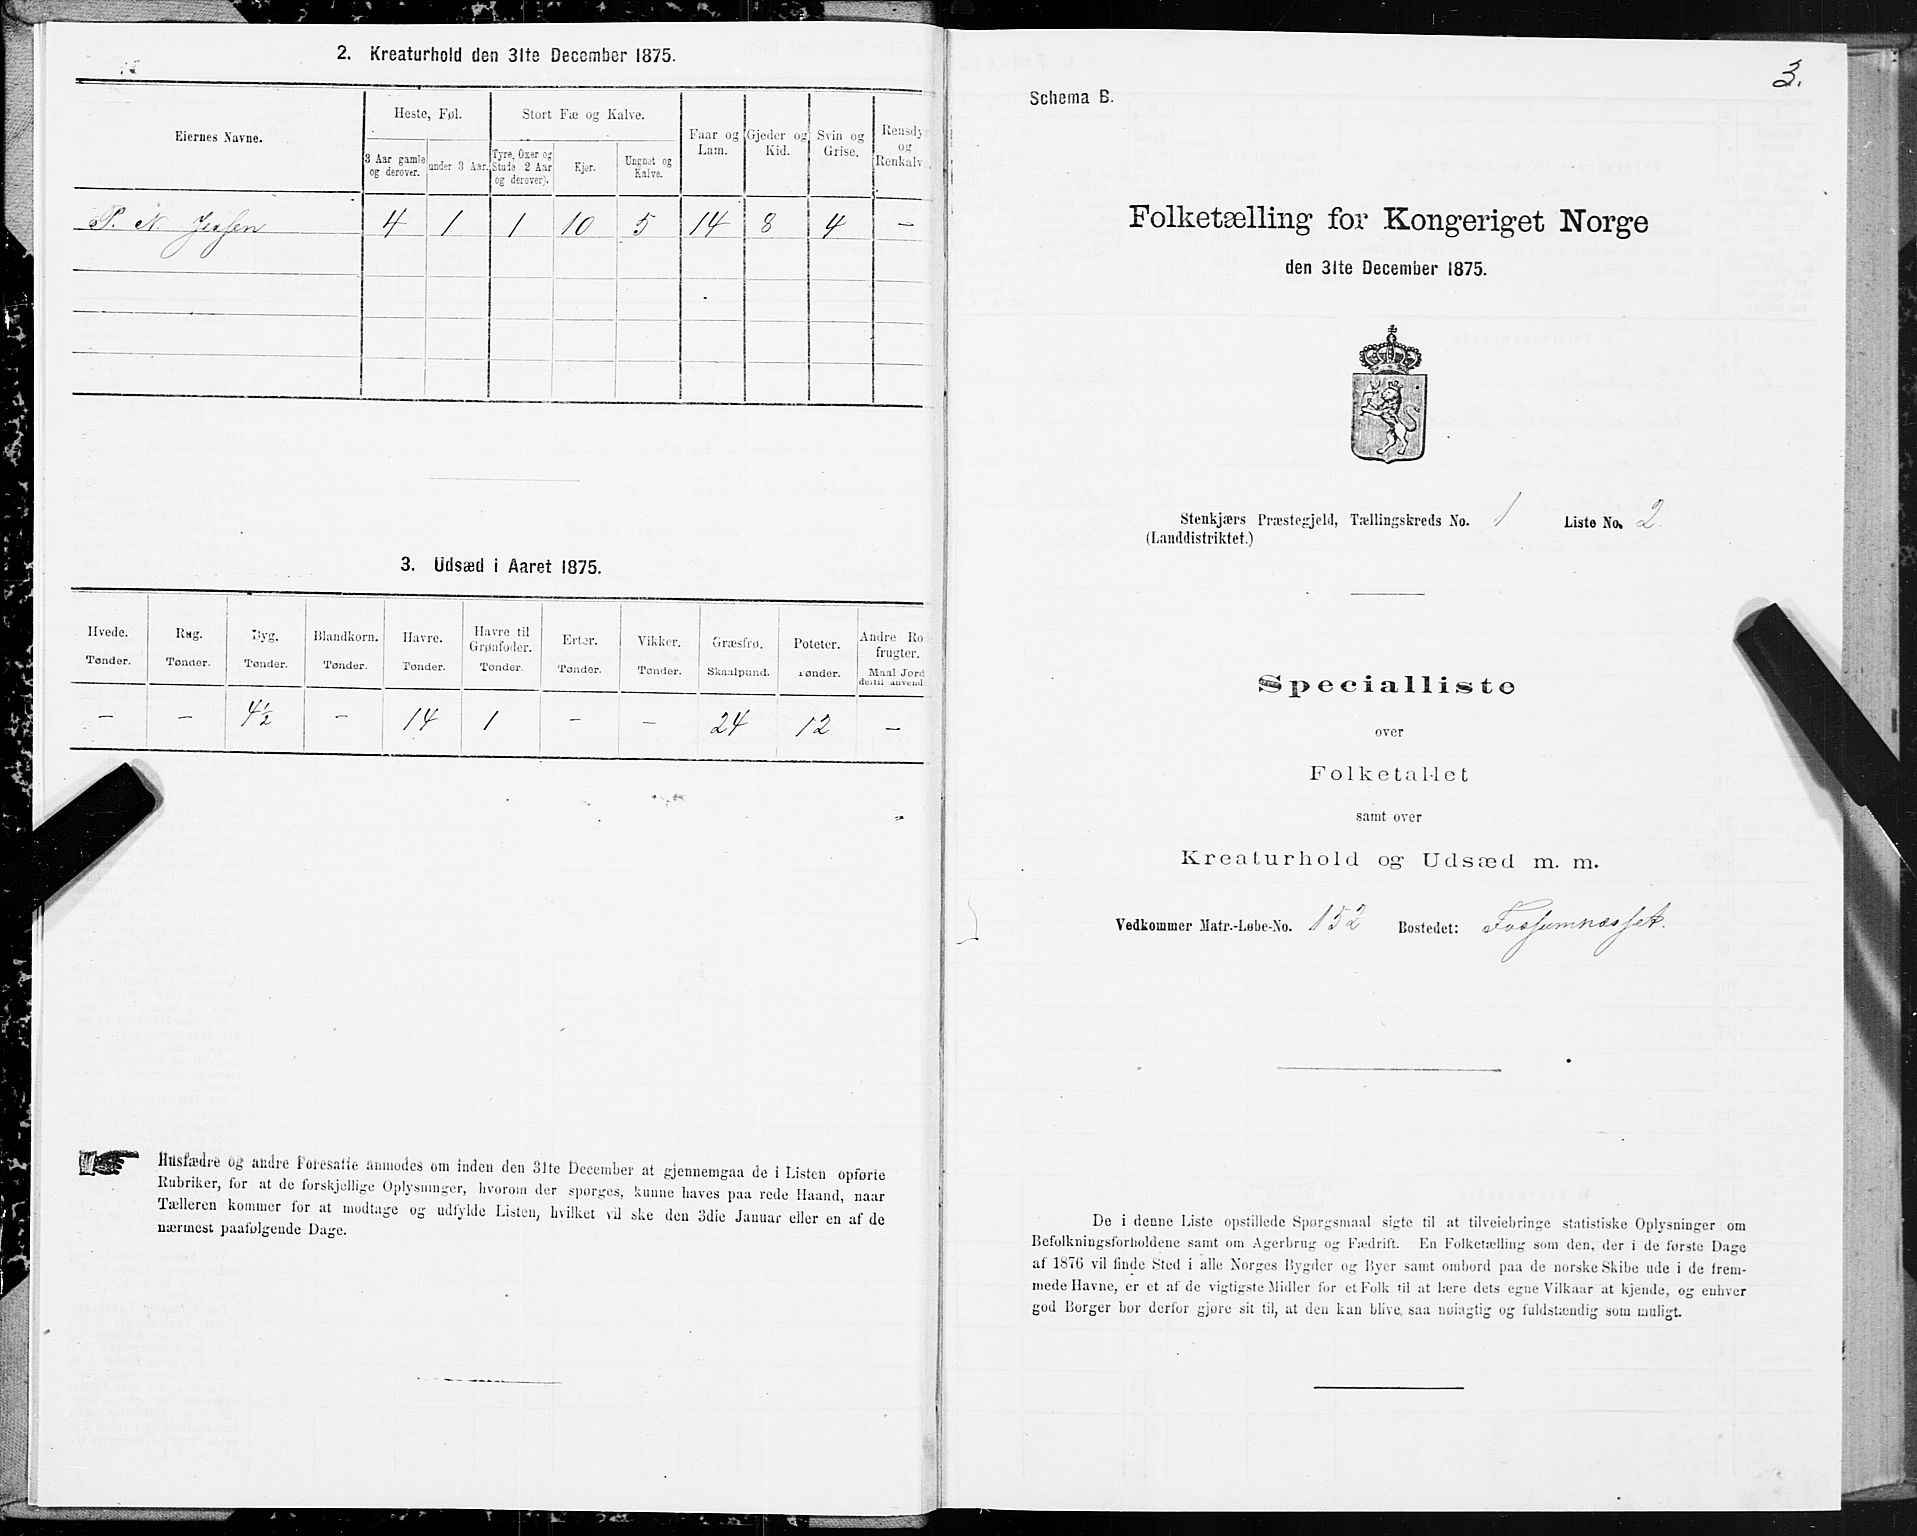 2. Kreaturhold den 31te December 1875.
Eiernes Navne.
Heste, Føl.
Stort Fæ og Kalve.
Faar og Lam.
Gjeder og Kid.
Svin og Grise.
Rensdyr og Renkalve.
3 Aar gamle og derover.
under 3 Aar.
Tyre, Oxer og Stude 2 Aar og derover).
Kjør.
Ungnøt og Kalve.
P. N. Jessen 4 1 1 10 5 14 8 4 —
3. Udsæd i Aaret 1875.
Hvede. Rug. Byg. Blandkorn. Havre. Havre til Grønfoder. Erter. Vikker. Græsfrø. Poteter. Andre Ro frugter.
Tønder. Tønder. Tønder. Tønder. Tønder. Tønder. Tønder. Tønder. Skaalpund. Tønder. Maal Jord dertil anvend
— — 4½ — 14 1 — — 24 12 —
Husfædre og andre Foresatte anmodes om inden den 31te December at gjennemgaa de i Listen opførte
Rubriker, for at de forskjellige Oplysninger, hvorom der spørges, kunne haves paa rede Haand, naar
Tælleren kommer for at modtage og udfylde Listen, hvilket vil ske den 3die Januar eller en af de
nærmest paafølgende Dage.
3.
Schema B.
Folketælling for Kongeriget Norge
den 31te December 1875.
Stenkjærs Præstegjeld, Tællingskreds No. 1 Liste No. 2.
(Landdistriktet.)
Specialliste
over
Folketallet
samt over
Kreaturhold og Udsæd m. m.
Vedkommer Matr.-Løbe-No. 152 Bostedet: Fossumnæsset.
De i denne Liste opstillede Spørgsmaal sigte til at tilveiebringe statistiske Oplysninger om
Befolkningsforholdene samt om Agerbrug og Fædrift. En Folketælling som den, der i de første Dage
af 1876 vil finde Sted i alle Norges Bygder og Byer samt ombord paa de norske Skibe ude i de frem-
mede Havne, er et af de vigtigste Midler for et Folk til at lære dets egne Vilkaar at kjende, og enhver
god Borger bør derfor gjøre sit til, at den kan blive saa nøiagtig og fuldstændig som muligt.